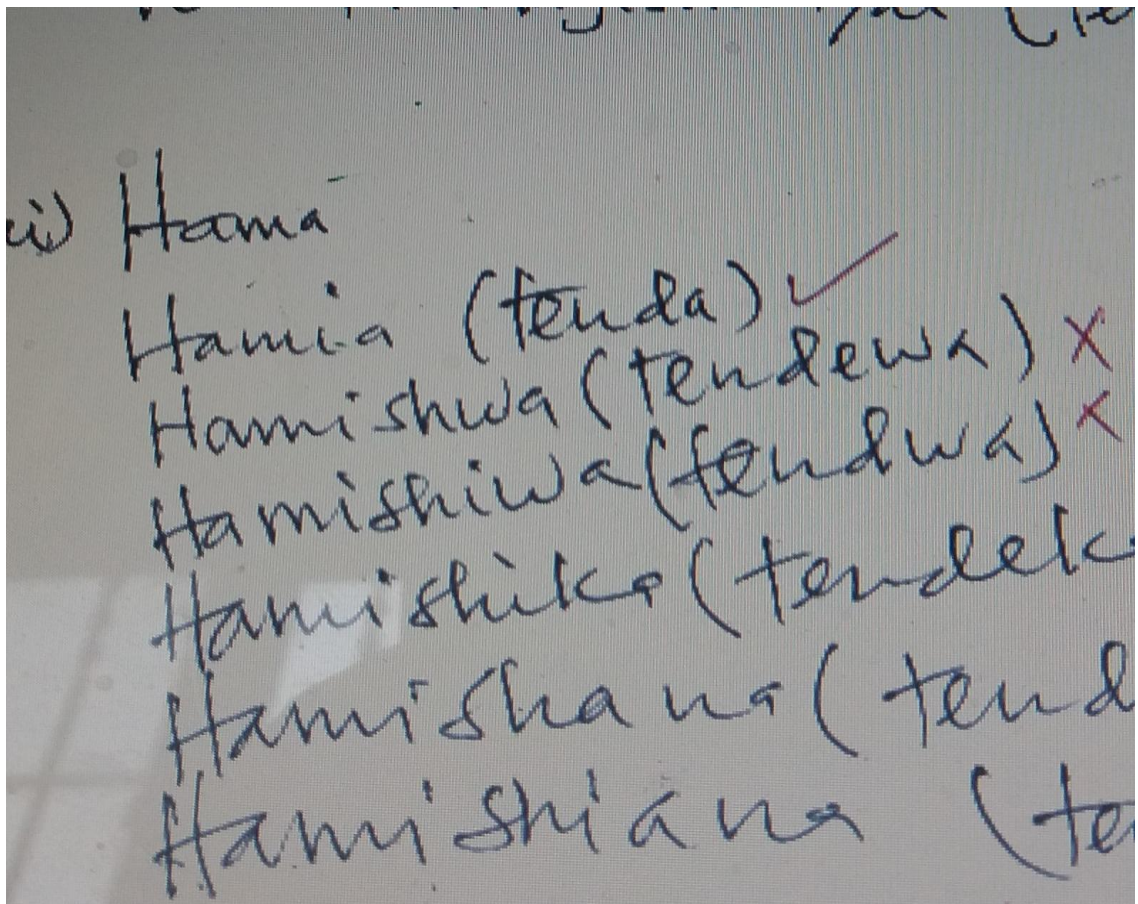 ii) Hama
Hamia (tenda) ✓
Hamishwa (tendewa) X
Hamishiwa (tendwa) X
Hamishika (tendek
Hamishana (tend
Hamishiana (te